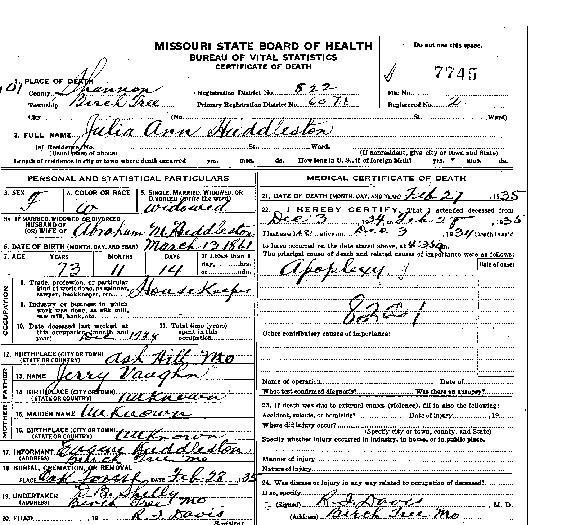 MISSOURI STATE BOARD OF HEALTH
BUREAU OF VITAL STATISTICS
CERTIFICATE OF DEATH
Do not use this space.
7745
1. PLACE OF DEATH
County Shannon Registration District No. 822 File No.
Township Birch Tree Primary Registration District No. 6071 Registered No. 2
City (No. St. Ward)
2. FULL NAME Julia Ann Huddleston
(a) Residence, No. St. Ward.
(Usual place of abode) (If nonresident, give city or town and State)
Length of residence in city or town where death occurred yrs. mos. ds. How long in U. S., if of foreign birth? yrs. mos. ds.
PERSONAL AND STATISTICAL PARTICULARS
3. SEX F
4. COLOR OR RACE W
5. SINGLE, MARRIED, WIDOWED, OR DIVORCED (write the word) widowed
5A. IF MARRIED, WIDOWED, OR DIVORCED
HUSBAND OF
(OR) WIFE OF Abraham M. Huddleston
6. DATE OF BIRTH (MONTH, DAY, AND YEAR) March 13 1861
7. AGE YEARS MONTHS DAYS If LESS than 1
73 11 14
OCCUPATION
8. Trade, profession, or particular
kind of work done, as spinner,
sawyer, bookkeeper, etc. House Keeper
9. Industry or business in which
work was done, as silk mill,
saw mill, bank, etc.
10. Date deceased last worked at
this occupation (month and
year) 1934
11. Total time (years)
spent in this
occupation
12. BIRTHPLACE (CITY OR TOWN) Ash Hill Mo
(STATE OR COUNTRY)
FATHER
13. NAME Jerry Vaughn
14. BIRTHPLACE (CITY OR TOWN) unknown
(STATE OR COUNTRY)
MOTHER
15. MAIDEN NAME unknown
16. BIRTHPLACE (CITY OR TOWN) unknown
(STATE OR COUNTRY)
17. INFORMANT Huddleston
(ADDRESS) Birch Tree Mo
18. BURIAL, CREMATION, OR REMOVAL
PLACE Oak Forest DATE Feb 28, 1935
19. UNDERTAKER Shelly
(ADDRESS) Birch Tree Mo
20. FILED 19 R. I. Davis
MEDICAL CERTIFICATE OF DEATH
21. DATE OF DEATH (MONTH, DAY, AND YEAR) Feb 27 1935
22. I HEREBY CERTIFY, That I attended deceased from
Dec 3 1934, to Feb 1935
I last saw h alive on Dec 3 1934 Death is said
to have occurred on the date stated above, at
The principal cause of death and related causes of importance were as follows:
Date of onset
Apoplexy
Other contributory causes of importance:
Name of operation Date of
What test confirmed diagnosis? Was there an autopsy?
23. If death was due to external causes (violence), fill in also the following:
Accident, suicide, or homicide? Date of injury 19
Where did injury occur?
(Specify city or town, county, and State)
Specify whether injury occurred in industry, in home, or in public place.
Manner of injury
Nature of injury
24. Was disease or injury in any way related to occupation of deceased?
If so, specify
(Signed) R. I. Davis M. D.
(Address) Birch Tree Mo